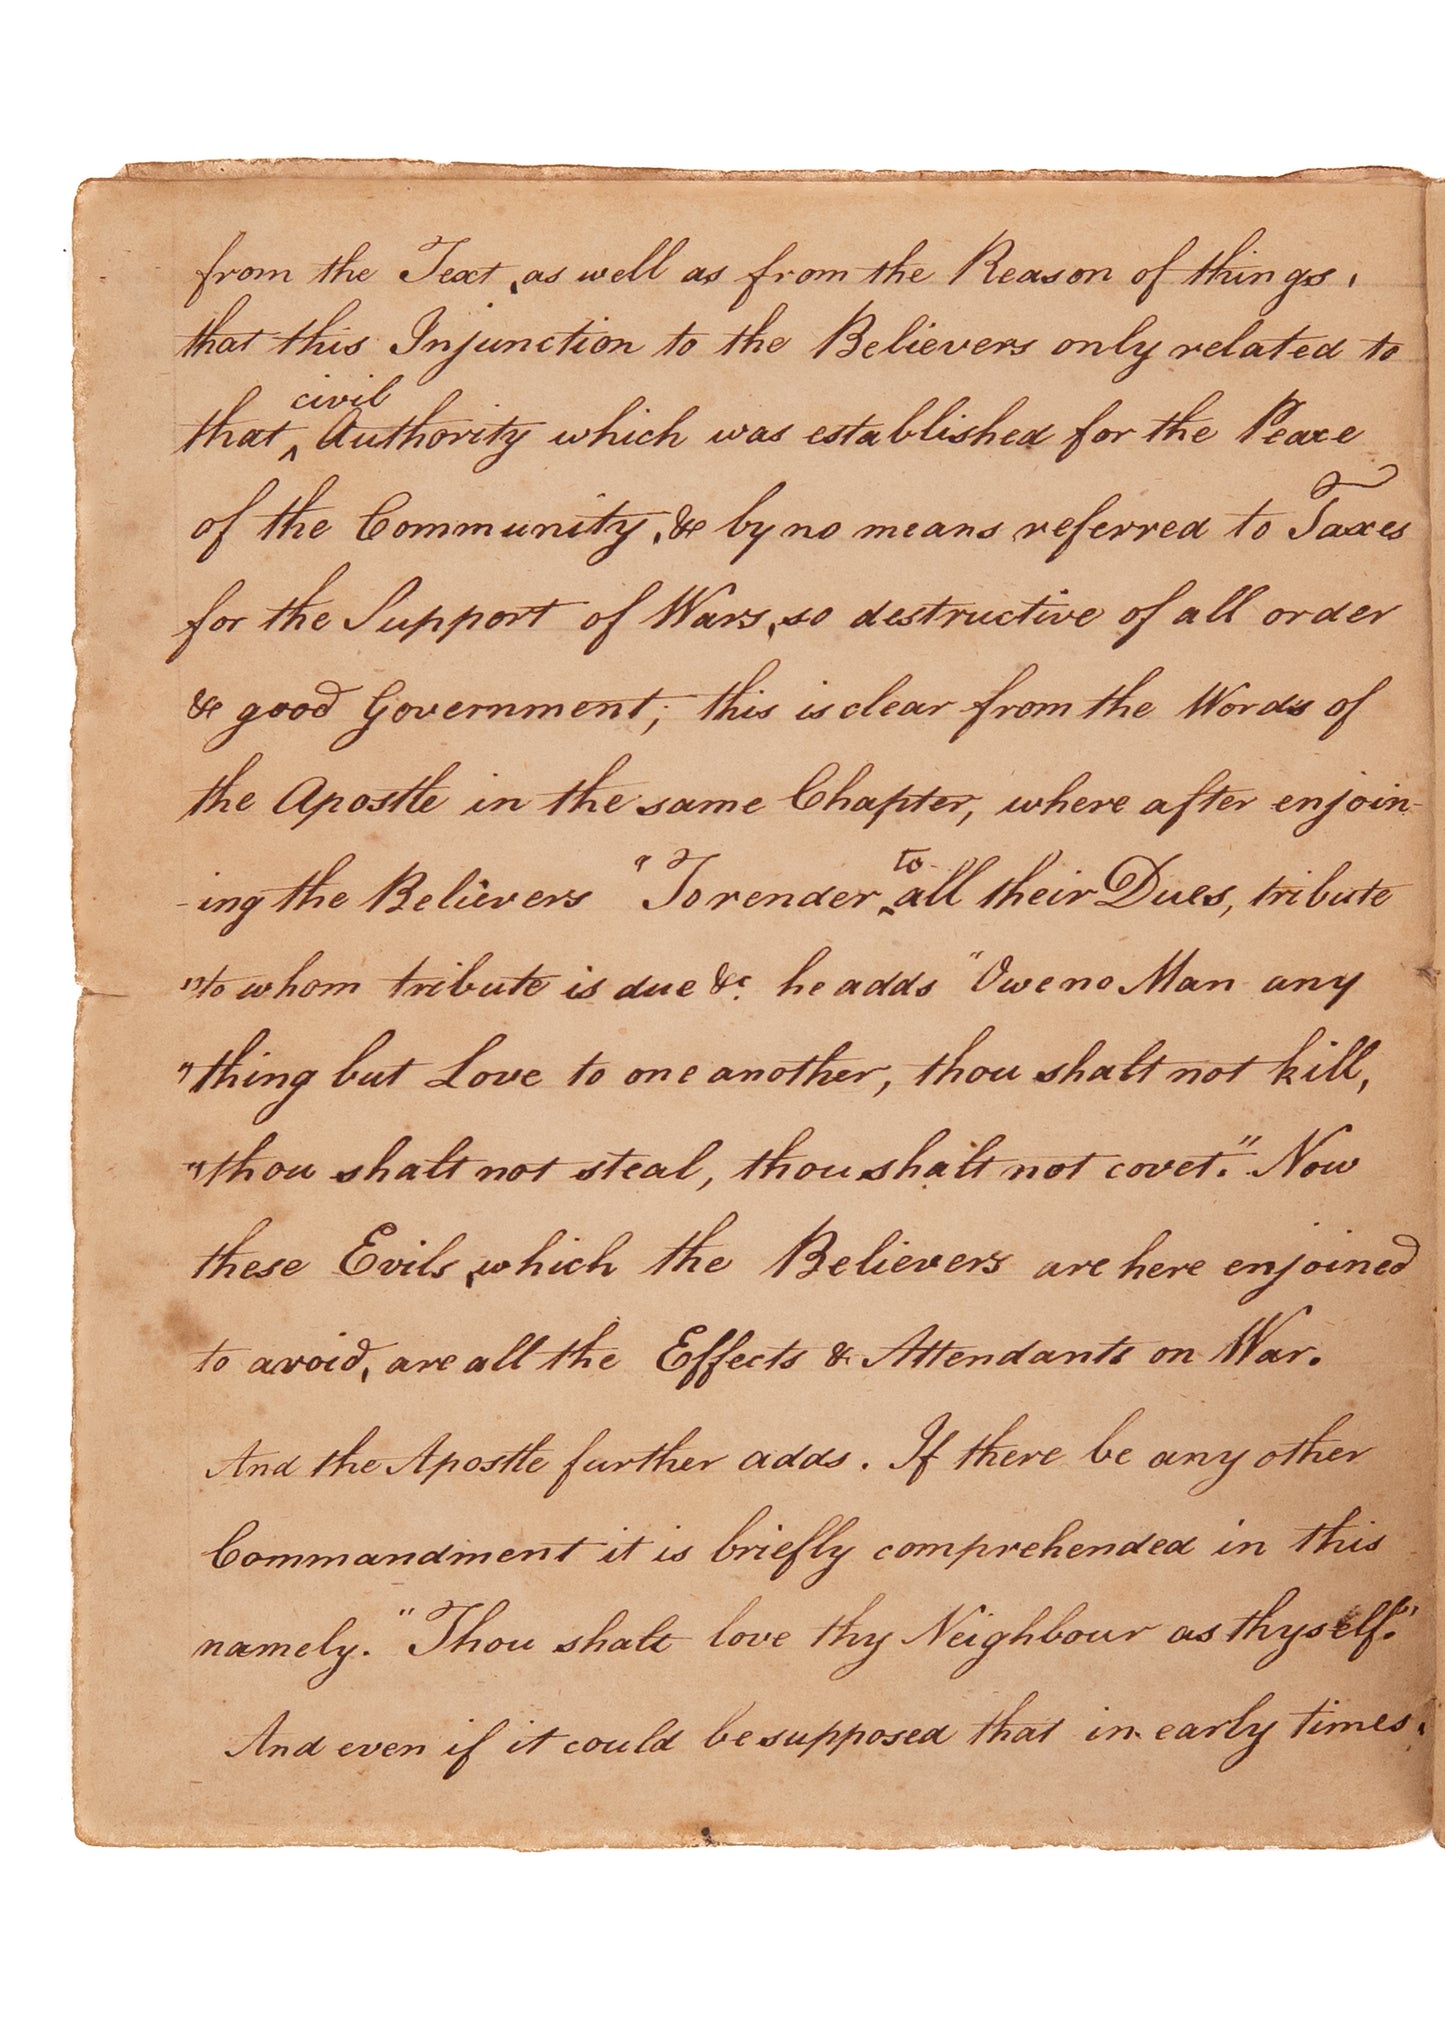 from the Text, as well as from the Reason of things,
that this Injunction to the Believers only related to
civil
that ‸ Authority which was established for the Peace
of the Community, & by no means referred to Taxes
for the Support of Wars, so destructive of all order
& good Government; this is clear from the Words of
the Apostle in the same Chapter, where after enjoin-
to
-ing the Believers "To render ‸ all their Dues, tribute
"to whom tribute is due &c. he adds "Owe no Man any
"thing but Love to one another, thou shalt not kill,
"thou shalt not steal, thou shalt not covet." Now
these Evils, which the Believers are here enjoined
to avoid, are all the Effects & Attendants on War.
And the Apostle further adds. If there be any other
Commandment it is briefly comprehended in this
namely. "Thou shalt love thy Neighbour as thyself."
And even if it could be supposed that in early times,